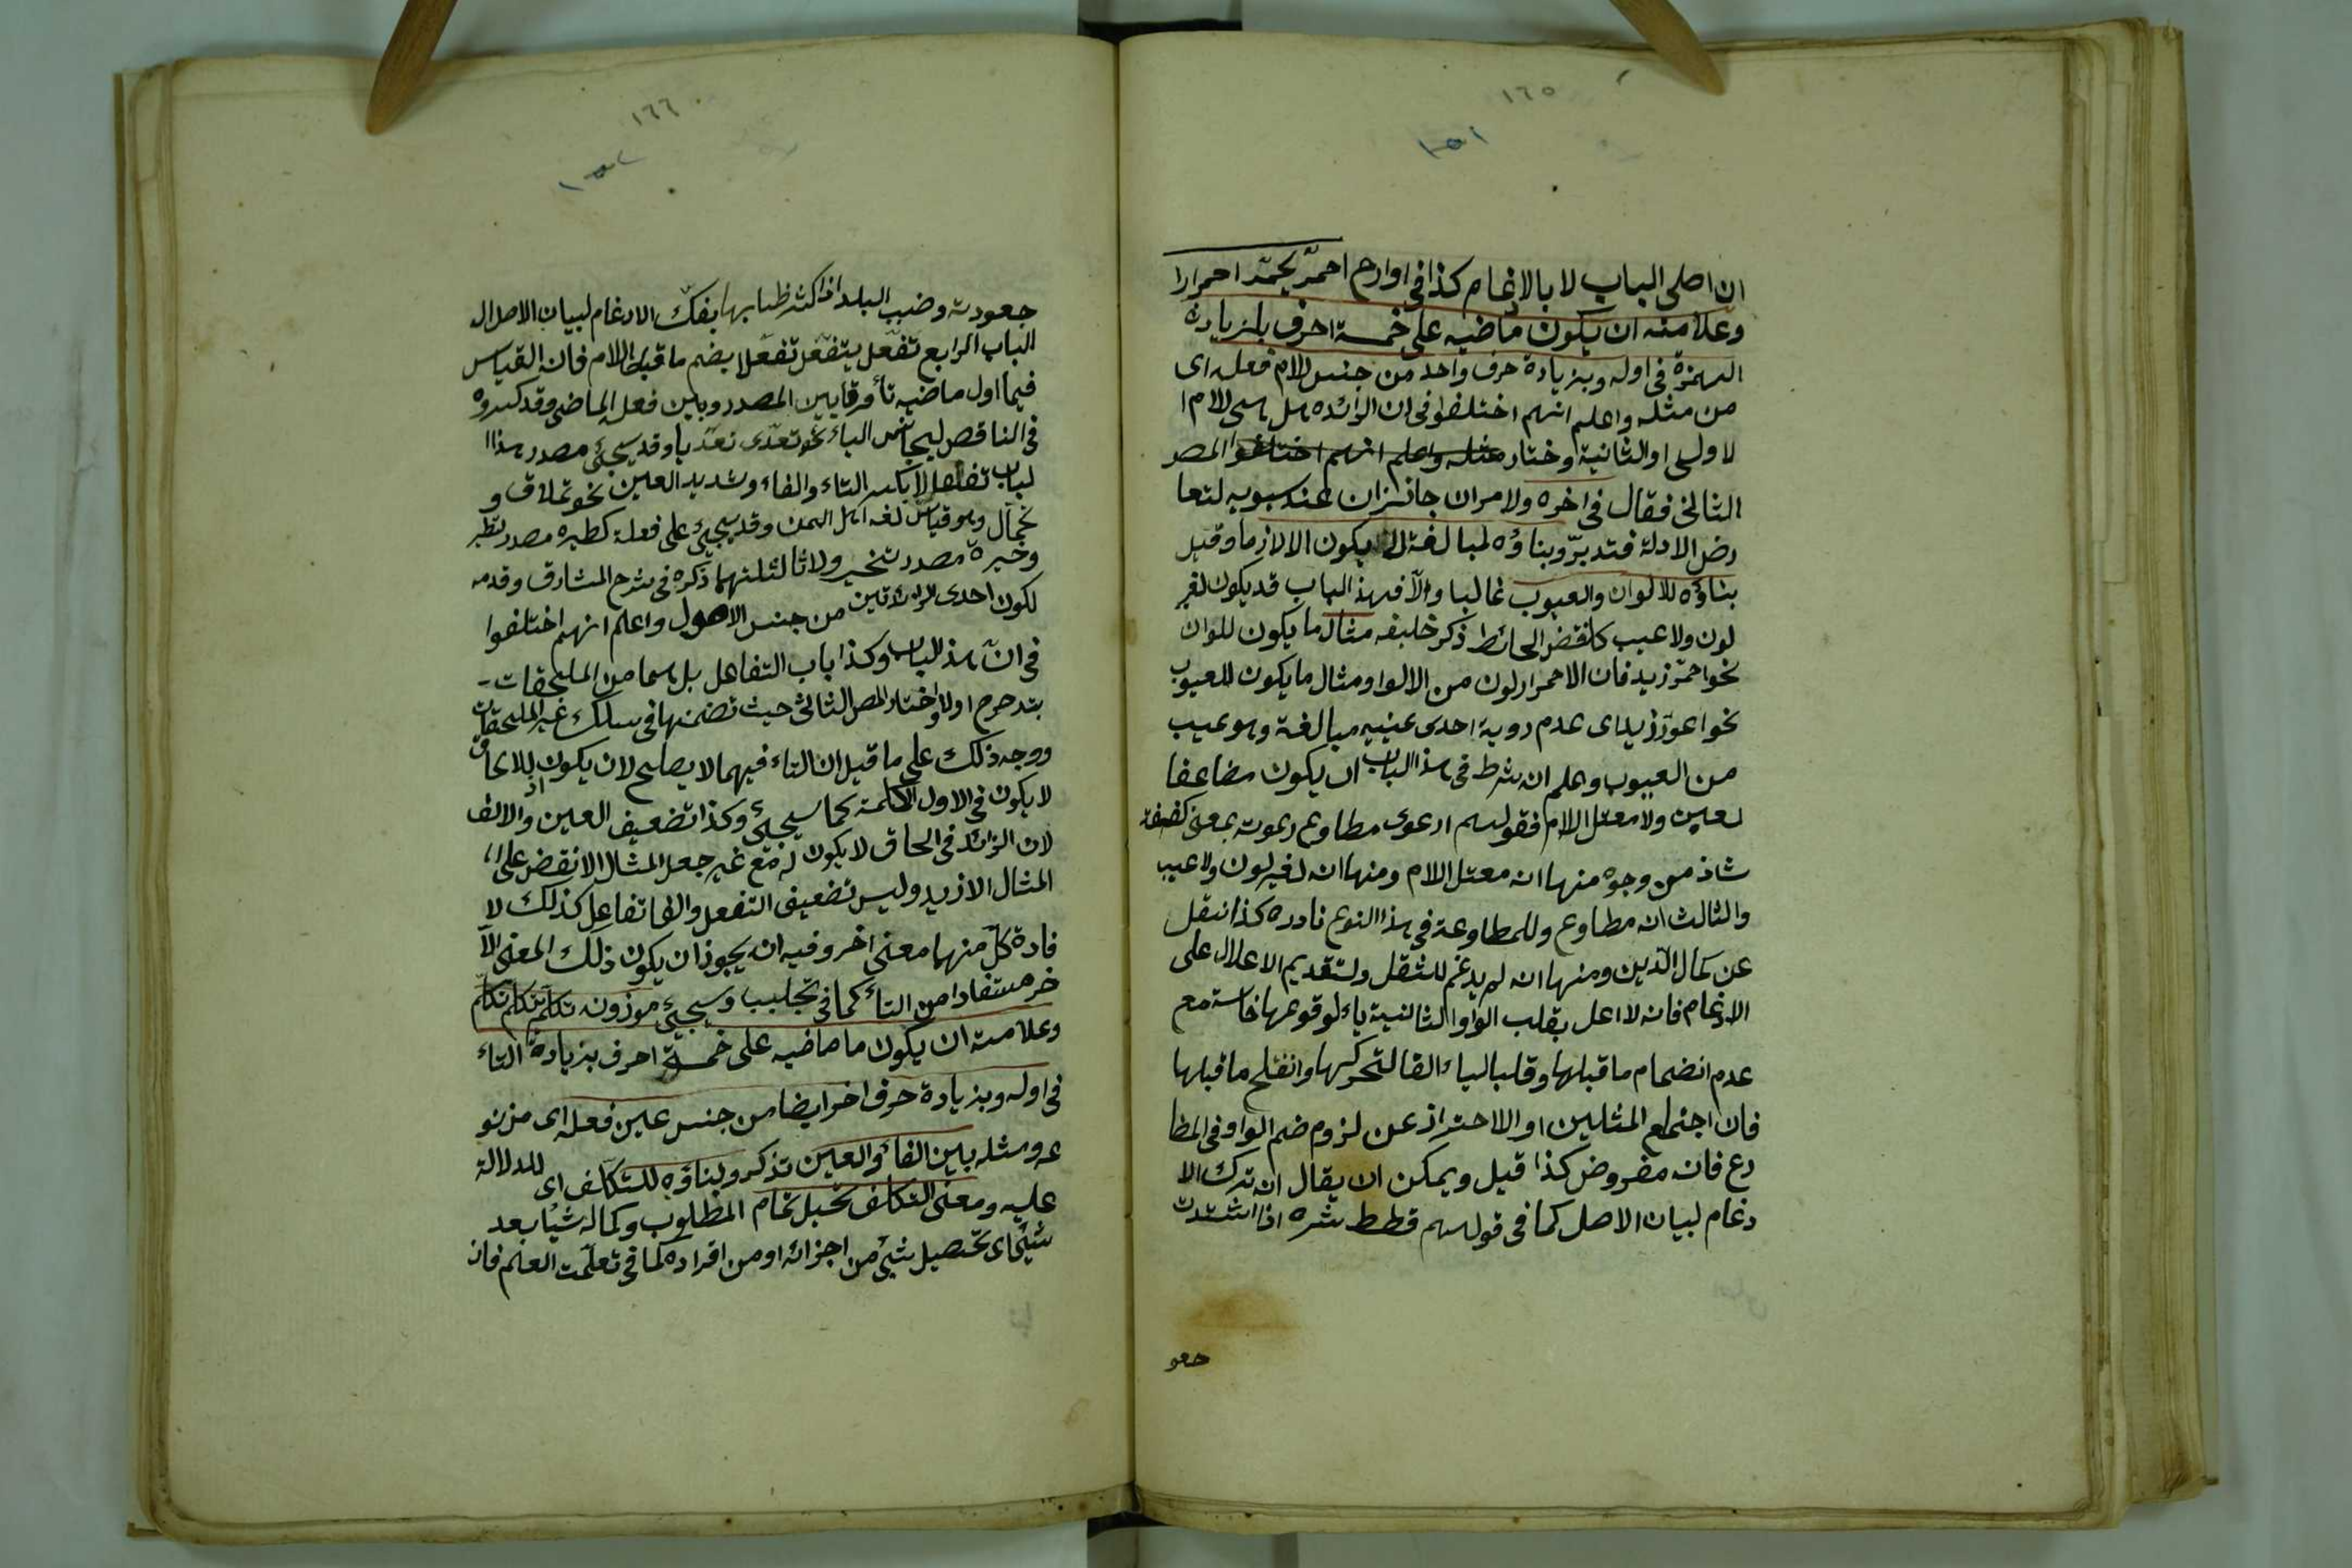 ١٦٥
١٥١
ان اصلى الباب لا بالادغام كذا فى اوارم احمرّ يحمرّ احمرارا
وعلامته ان يكون ماضيه على خمسة احرف بلزيادة
الهمزة فى اوله وبزيادة حرف واحد من جنس للام فعله اى
من مثله واعلم انهم اختلفوا فى ان الزائده هل هى للام ا
لاولى او الثانية وختار مثله واعلم انهم اختلفوا المصر
الثانى فقال فى اخره ولامران جائزان عند سبويه لتعا
رض الادلة فتدبرّ وبناؤه لمبالغة يكون الا لازما وقيل
بناؤه للالوان والعيوب غالبا والّا فهذ الباب قد يكون لغير
لون ولا عيب كانقض الحائط ذكر خليفه مثال ما يكون للوان
نحو احمرّ زيد فان الاحمرار لون من الالوا ومثال ما يكون للعيوب
نحو اعورّ زيد اى عدم روية احدى عينيه مبالغة وهو عيب
من العيوب وعلم ان شرط فى هذ الباب ان يكون مضاعفا
لعين ولا معتل الام فقولهم ارعوى مطاوع رعوته بمعنى كففته
شاذ من وجوه منها انه معتل اللام ومنها انه لغير لون ولا عيب
والثالث انه مطاوع وللمطاوعة فى هذا النوع نادره كذا نقل
عن كمال الدّين ومنها انه لم يدغم للثقل ولتقديم الاعلال على
الادغام فانه لا اعل بقلب الواو الثانية ياء لوقوعها خاسة مع
عدم انضمام ما قبلها وقلب الياء الفا لتحركها وانفتاح ما قبلها
فان اجتماع المثلين او الاحتراز عن لزوم ضم الواو فى المظا
رع فانه مفروض كذا قيل ويمكن ان يقال انه ترك الا
دغام لبيان الاصل كما فى قولهم قطط شره اذا اشتدت
جعو
١٦٦
١٥٢
جعودته وضبب البلد اذا كثر ظبابها بفكّ الادغام لبيان الاصل ال
الباب الرابع تفعّل يتفعّل تفعّلا بضم ما قبل اللام فان القياس
فيما اول ماضيه تأ فرقا بين المصدر وبين فعل الماضى وقد كسروه
فى الناقص ليجانس الياء نحو تعدّى تعدّيا وقد يجئ مصدر هذا ا
لباب تفعلا بكسر التاء والفاء وشديد العين نحو تملاق و
تجمّال وهو قياس لغة اهل اليمن وقد يجئ على فعلة كطيره مصدر تطير
وخيرة مصدر تخير ولا ثالث لهما ذكره فى شرح المشارق وقدمه
لكون احدى الزائدتين من جنس الاصول واعلم انهم اختلفوا
فى انّ هذ الباب وكذا باب التفاعل بل هما من الملحقات
بتدحرج اولا واختار المص الثانى حيث تضمنها فى سلك غير الملحقات
ووجه ذلك على ما قيل ان التاء فيهما لا يصلح لان يكون للالحاق اذ
لا يكون فى الاول الكلمة كما سيجئ وكذا تضعيف العين والالف
لان الزائد فى الحاق لا يكون له مع غير جعل المثال الانقض على ا
المثال الازيد وليس تضعيف التفعل والف تفاعل كذلك لا
فادة كلّ منهما معنى اخر وفيه انه يجوز ان يكون ذلك المعنى الآ
خر مستفادا من التاء كما فى تجلبب وسيجئ موزونه تكلّم يتكلم تكلّما
وعلامته ان يكون ما ماضيه على خمسة احرف بزيادة التاء
فى اوله وبزيادة حرف اخر ايضا من جنس عين فعله اى من نو
عه ومثله بين الفاء والعين تذكر وبناؤه للتكلف اى للدلالة
عليه ومعنى التكلف تحصيل تمام المطلوب وكماله شيئا بعد
شيئ اى تحصيل شيئ من اجزائه او من افراده كما فى تعلّمت العلم فان